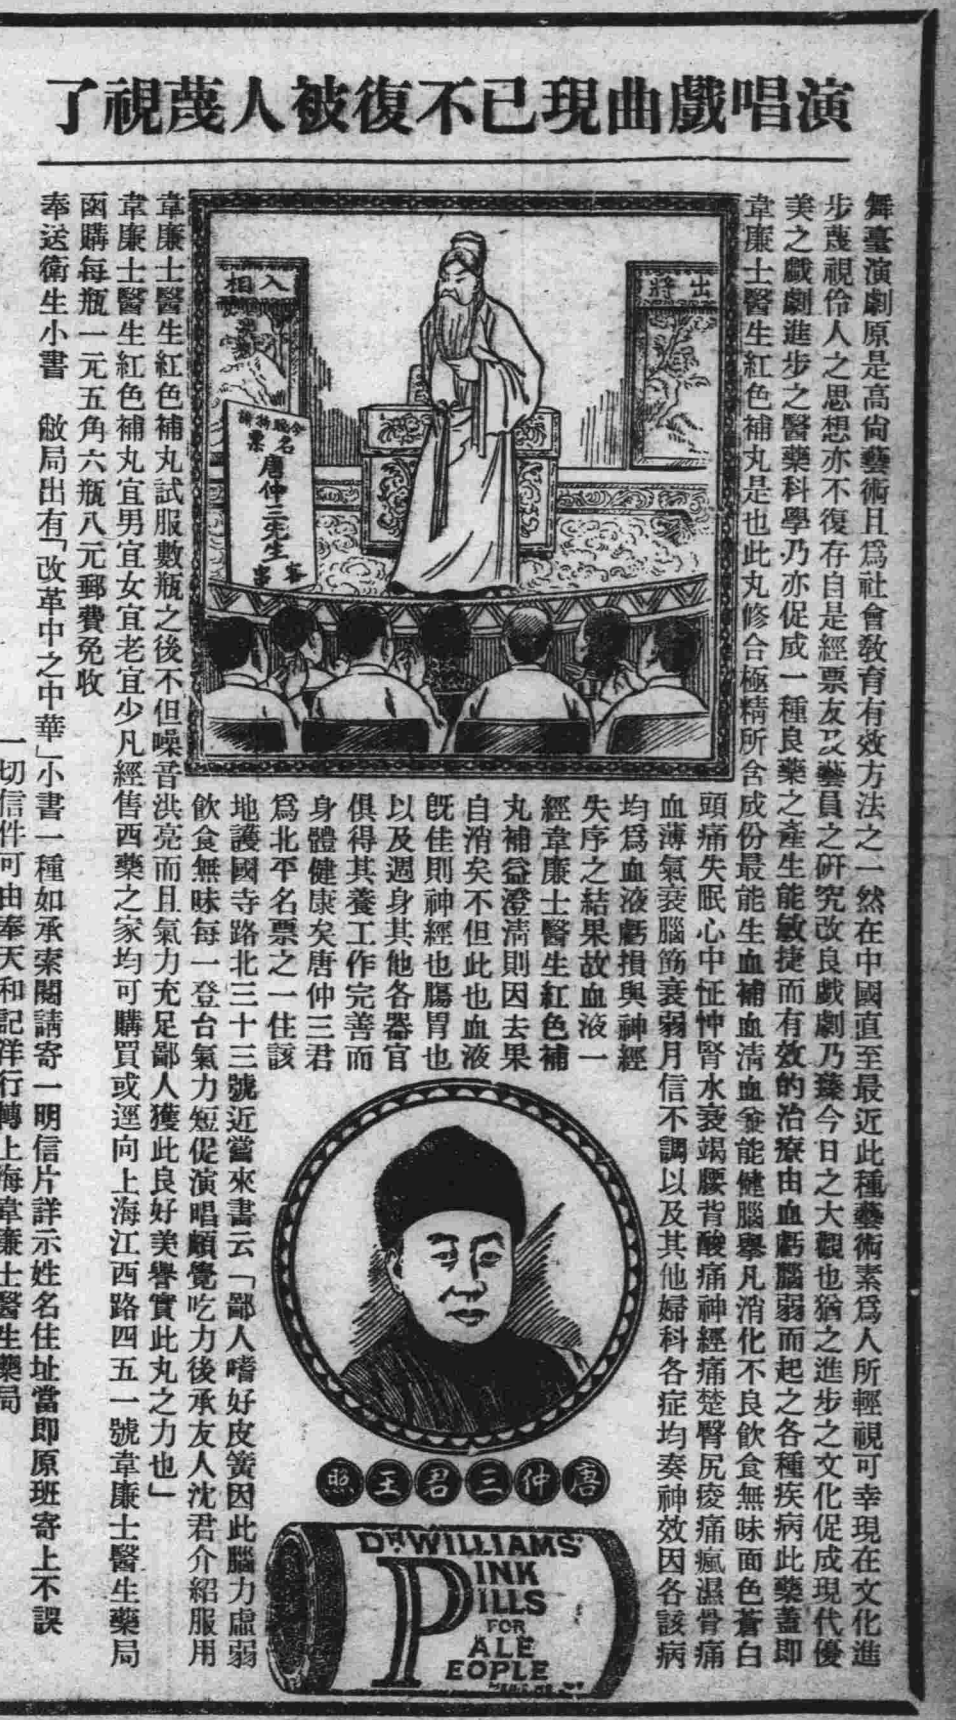 演唱戲曲現已不復被人蔑視了
舞臺演劇原是高尙藝術且爲社會敎育有效方法之一然在中國直至最近此種藝術素爲人所輕視可幸現在文化進
步蔑視伶人之思想亦不復存自是經票友及藝員之硏究改良戲劇乃臻今日之大觀也猶之進步之文化促成現代優
美之戲劇進步之醫藥科學乃亦促成一種良藥之產生能敏捷而有效的治療由血虧腦弱而起之各種疾病此藥蓋即
韋廉士醫生紅色補丸是也此丸修合極精所含成份最能生血補血淸血並能健腦舉凡消化不良飲食無味面色蒼白
頭痛失眠心中怔忡腎水衰竭腰背酸痛神經痛楚臀尻痠痛瘋濕骨痛
血薄氣衰腦筋衰弱月信不調以及其他婦科各症均奏神效因各該病
均爲血液虧損與神經
失序之結果故血液一
經韋廉士醫生紅色補
丸補益澄淸則因去果
自消矣不但此也血液
旣佳則神經也腸胃也
以及週身其他各器官
俱得其養工作完善而
身體健康矣唐仲三君
爲北平名票之一住該
地護國寺路北三十三號近嘗來書云「鄙人嗜好皮簧因此腦力虛弱
飲食無味每一登台氣力短促演唱頗覺吃力後承友人沈君介紹服用
韋廉士醫生紅色補丸試服數瓶之後不但嗓音洪亮而且氣力充足鄙人獲此良好美譽實此丸之力也」
韋廉士醫生紅色補丸宜男宜女宜老宜少凡經售西藥之家均可購買或逕向上海江西路四五一號韋廉士醫生藥局
函購每瓶一元五角六瓶八元郵費免收
奉送衛生小書 敝局出有「改革中之中華」小書一種如承索閱請寄一明信片詳示姓名住址當即原班寄上不誤
一切信件可由奉天和記洋行轉上海韋廉士醫生藥局
出將
入相
今晚特請
名票
唐仲三先生
客串
唐仲三君玉照
DR WILLIAMS'
PINK
PILLS
FOR
PALE
PEOPLE